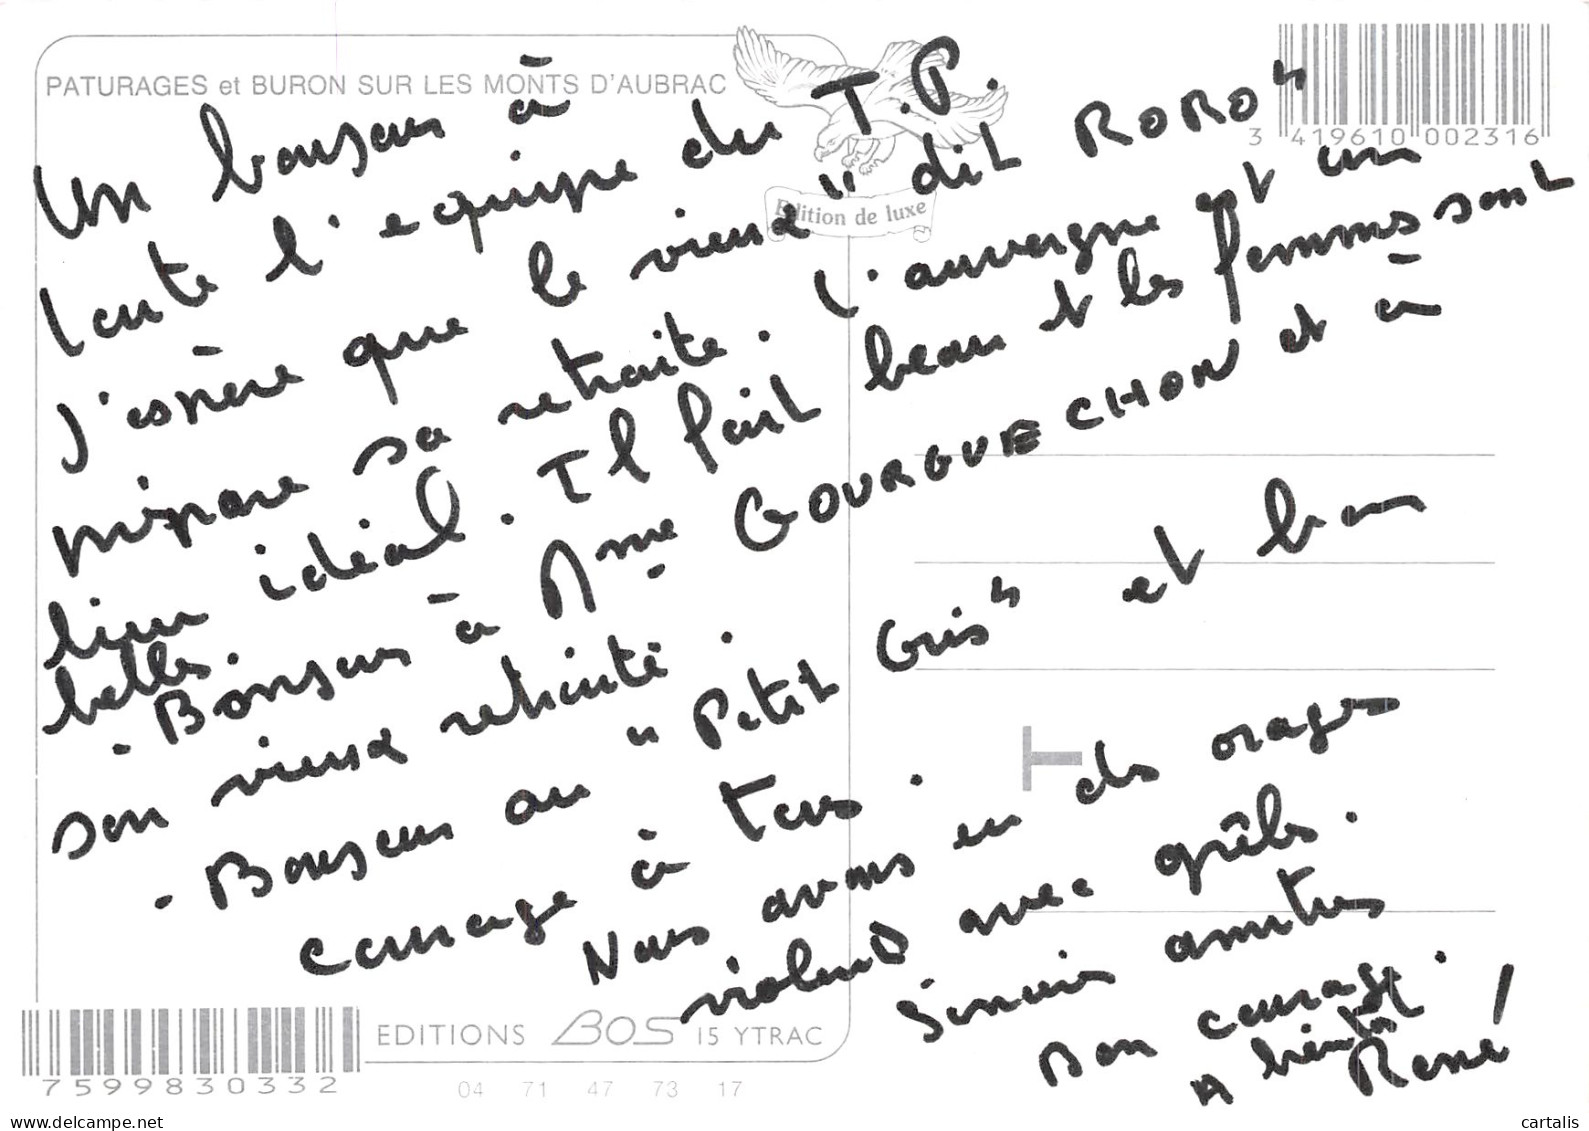 PATURAGES et BURON SUR LES MONTS D'AUBRAC
Edition de luxe
3 419610 002316
Un bonjour à
toute l'equipe du T.P.
J'espère que le vieux "dit RORO"
prépare sa retraite. L'auvergne est un
lieu idéal. Il fait beau et les femmes sont
belles.
- Bonjour à Mme GOURGUECHON et à
son vieux retraité.
- Bonjour au "Petit Gris" et bon
courage à tous.
Nous avons eu des orages
violents avec grêles.
Sincères amitiés
Bon courage.
A bientôt
René!
EDITIONS BOS 15 YTRAC
7599830332
04 71 47 73 17
www.delcampe.net
cartalis